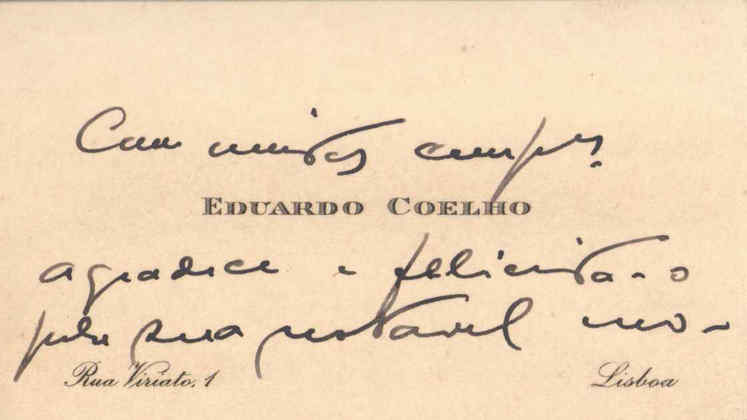 Com muitos cumps.
EDUARDO COELHO
agradece e felicita-o
pela sua notavel mo-
Rua Viriato, 1
Lisboa